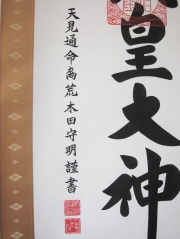 皇大神
天見通命孫荒木田守明謹書